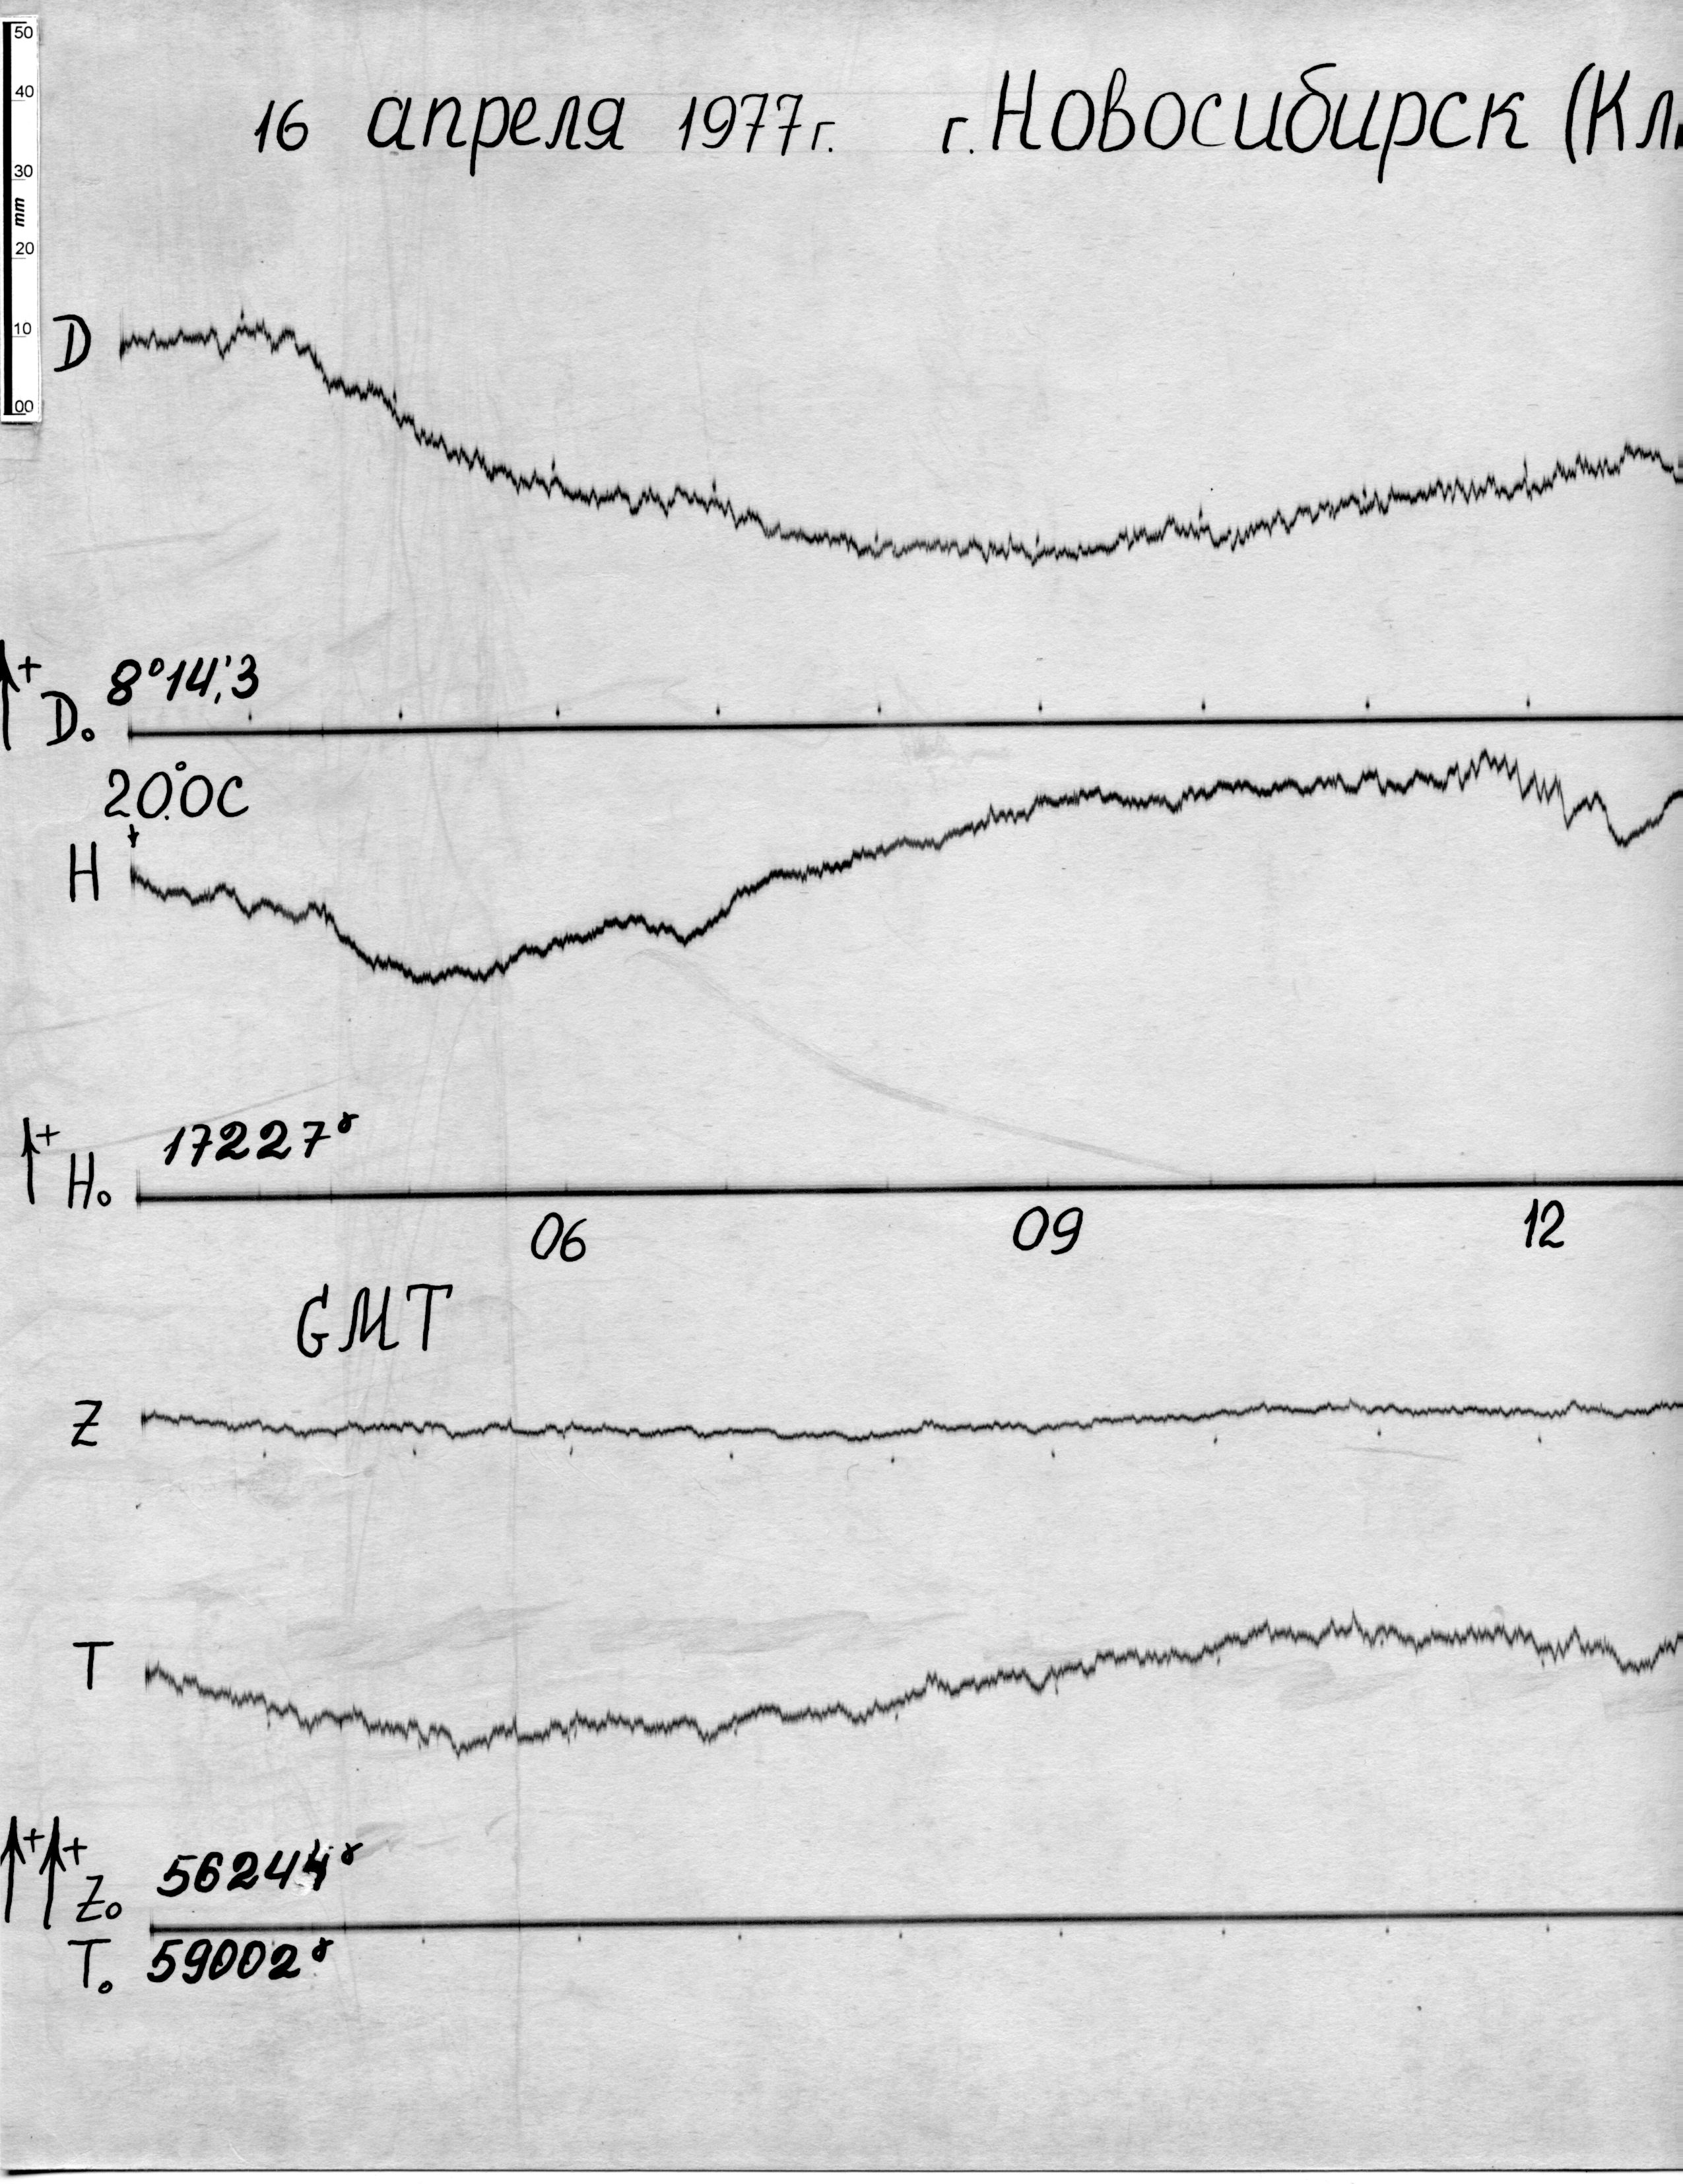 50
40
30
mm
20
10
00
16 апреля 1977г. г. Новосибирск (Кл
D
+
8°14,'3
D₀
20.°0C
H
+
17227ᵞ
H₀
06 09 12
GMT
Z
T
+ +
56244ᵞ
Z₀
T₀ 59002ᵞ